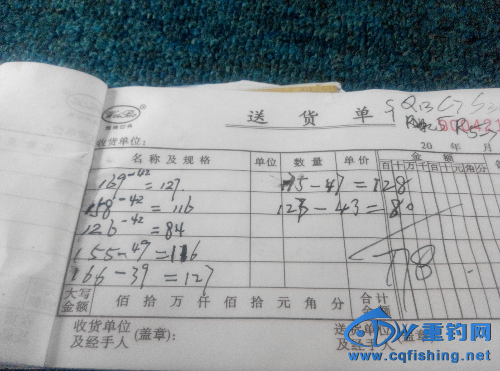 送货单
收货单位:
20 年 月
名称及规格 单位 数量 单价 金额
百十万千百十元角分
169-42=127 175-47=128
158-42=116 123-43=80
126-42=84
155-49=116
166-39=127
778
大写金额 佰拾万仟佰拾元角分 合计金额
收货单位及经手人(盖章): 送货单位及经手人(盖章):
重钓网
www.cqfishing.net